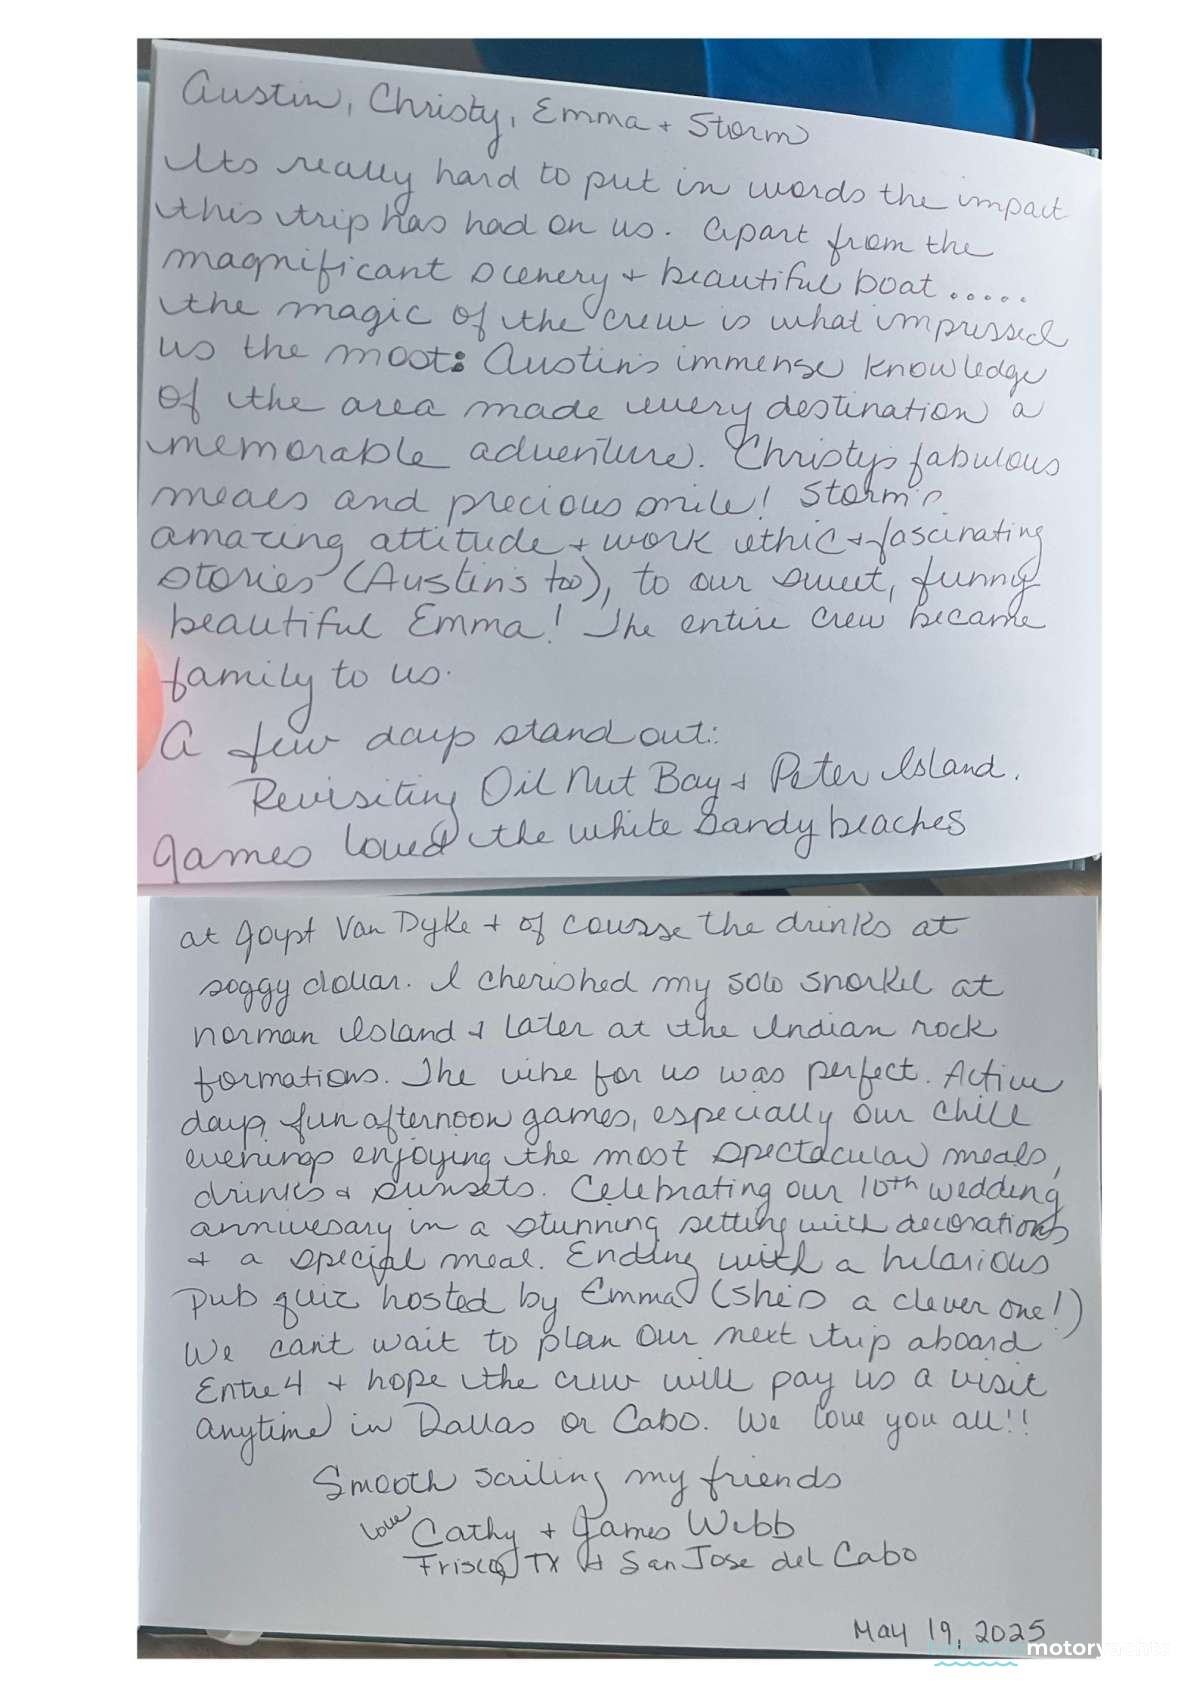 Austin, Christy, Emma + Storm
Its really hard to put in words the impact
this trip has had on us. Apart from the
magnificant scenery + beautiful boat.....
the magic of the crew is what impressed
us the most: Austin's immense knowledge
of the area made every destination a
memorable adventure. Christy's fabulous
meals and precious smile! Storm's
amazing attitude + work ethic + fascinating
stories (Austin's too), to our sweet, funny
beautiful Emma! The entire crew became
family to us.
A few days stand out:
Revisiting Oil Nut Bay + Peter Island.
James loved the white sandy beaches
at Joypt Van Dyke + of course the drinks at
soggy dollar. I cherished my solo snorkel at
norman Island + later at the Indian rock
formations. The vibe for us was perfect. Active
days, fun afternoon games, especially our chill
evenings enjoying the most spectacular meals,
drinks + sunsets. Celebrating our 10th wedding
annivesary in a stunning setting with decorations
+ a special meal. Ending with a hilarious
pub quiz hosted by Emma (she's a clever one!)
We can't wait to plan our next trip aboard
Entre 4 + hope the crew will pay us a visit
anytime in Dallas or Cabo. We love you all!!
Smooth sailing my friends
love Cathy + James Webb
Frisco, TX + San Jose del Cabo
May 19, 2025
motoryachts